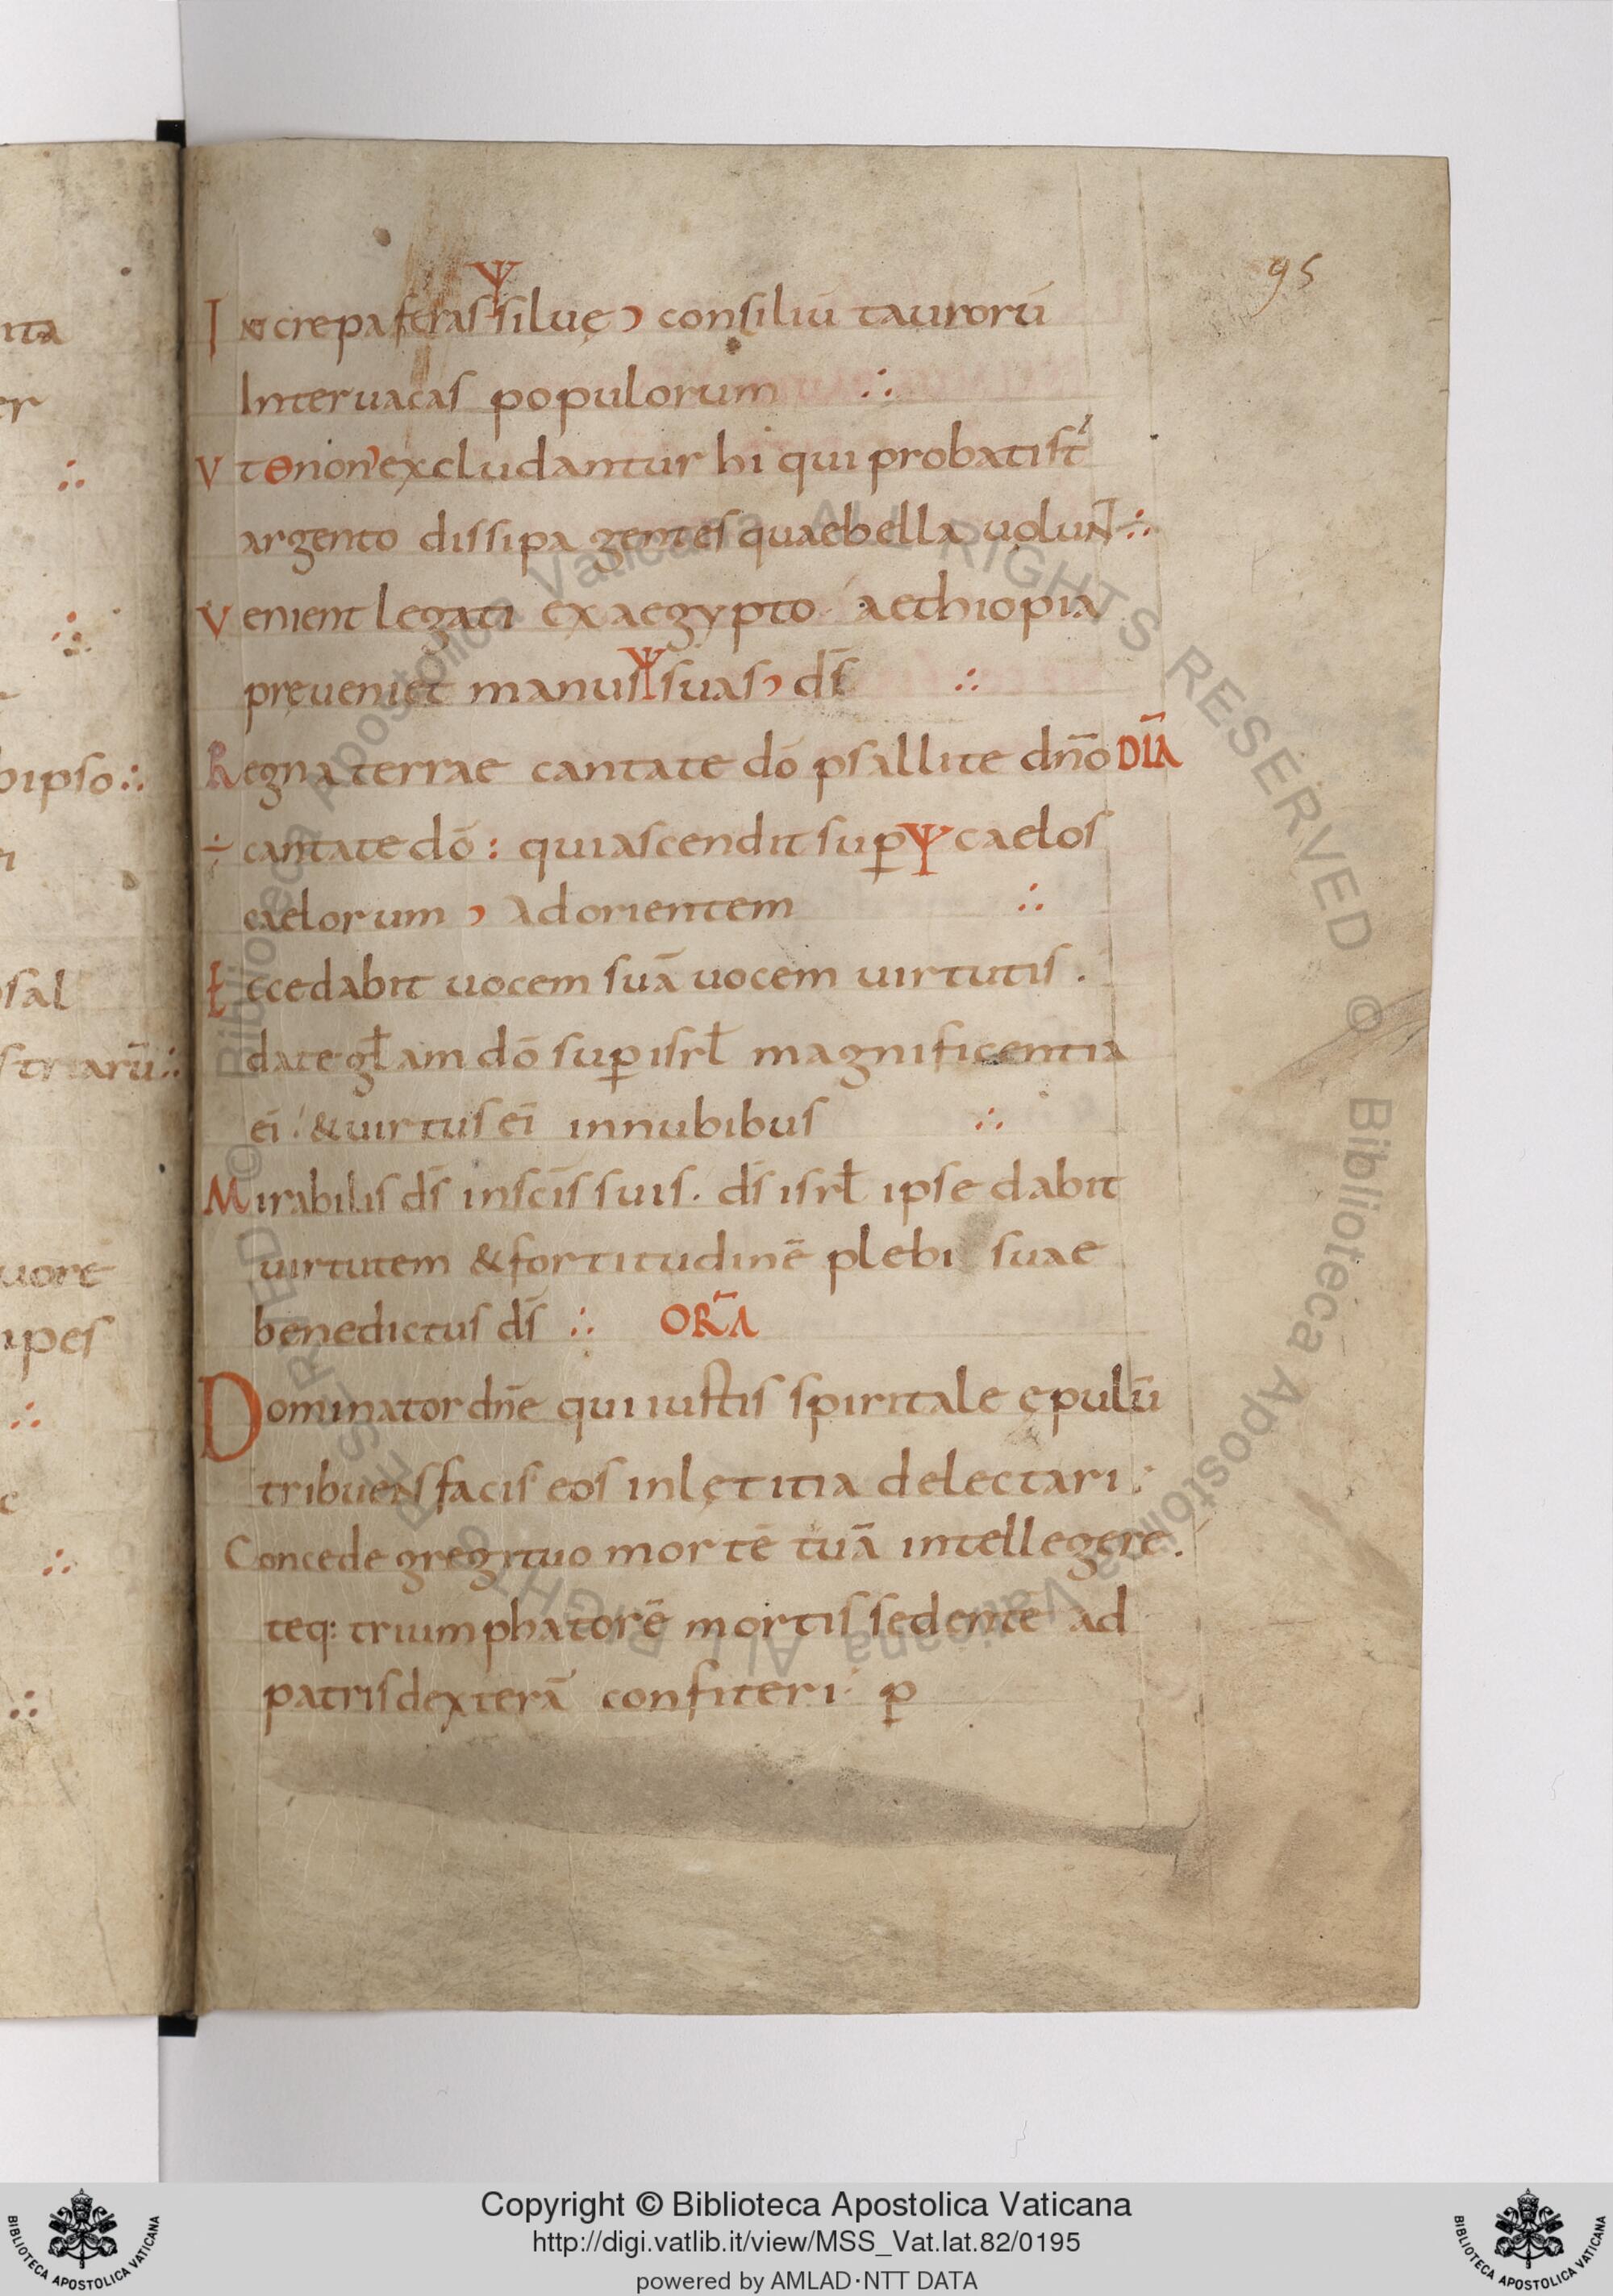 95
Increpa feras Ψ siluę ͻ consiliū taurorū
Inter uacas populorum ∴
Vt Θ non excludantur hi qui probatist̄
argento dissipa gentes quae bella uoluN̄ ∴
Venient legati ex aegypto aethiopia
pręueniet manus Ψ suas ͻ ds̄ ∴
Regna terrae cantate dō psallite dn̄o DIĀ
÷ cantate dō : qui ascendit sup̱ Ψ caelos
caelorum ͻ ad orientem ∴
Ecce dabit uocem suā uocem uirtutis .
date gl̄am dō sup̱ isrl̄ magnificentia
ei̅ & uirtus ei̅ in nubibus ∴
Mirabilis ds̄ in sc̄is suis . ds̄ isrl̄ ipse dabit
uirtutem & fortitudinē plebi suae
benedictus ds̄ ∴ OR̄A
Dominator dn̄e qui iustis spiritale ępulū
tribueNs facis eos in lętitia delectari :
Concede gregi tuo mortē tuā intellegere .
teq: triumphatorē mortis sedentē ad
patris dexterā confiteri p̱
ita
er
∴
∴
bipso ∴
sal
striarū ∴
uore
ipes
∴
∴
∴
© Biblioteca Apostolica Vaticana ALL RIGHTS RESERVED © Biblioteca Apostolica Vaticana ALL RIGHTS RESERVED
Copyright © Biblioteca Apostolica Vaticana
http://digi.vatlib.it/view/MSS_Vat.lat.82/0195
powered by AMLAD·NTT DATA
BIBLIOTECA APOSTOLICA VATICANA
BIBLIOTECA APOSTOLICA VATICANA